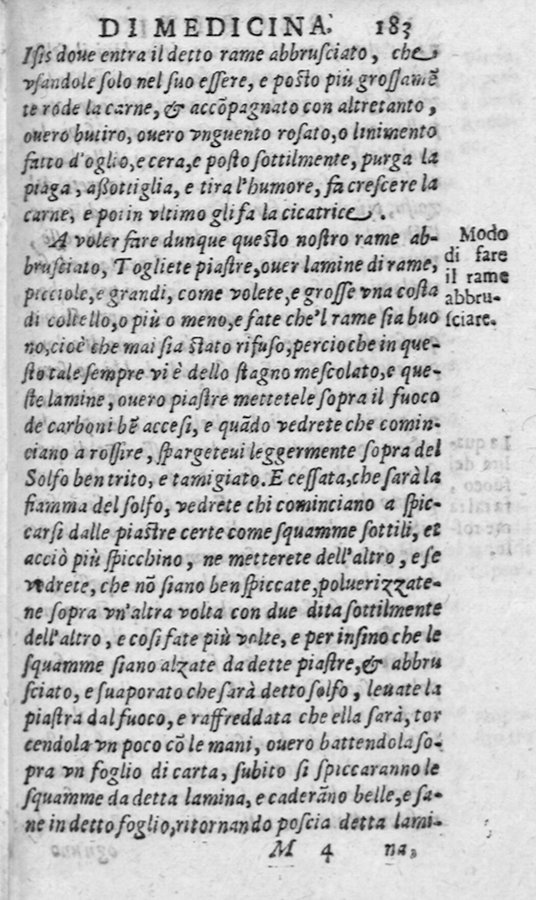 DI MEDICINA. 183
Isis doue entra il detto rame abbrusciato, che
vsandole solo nel suo essere, e posto più grossamẽ
te rode la carne, & accõpagnato con altretanto,
ouero butiro, ouero vnguento rosato, o linimento
fatto d'oglio, e cera, e posto sottilmente, purga la
piaga, aßottiglia, e tira l'humore, fa crescere la
carne, e poi in vltimo gli fa la cicatrice.
A voler fare dunque questo nostro rame ab-
brusciato, Togliete piastre, ouer lamine di rame,
picciole, e grandi, come volete, e grosse vna costa
di coltello, o più o meno, e fate che'l rame sia buo
no, cioè che mai sia stato rifuso, percioche in que-
sto tale sempre vi è dello stagno mescolato, e que-
ste lamine, ouero piastre mettetele sopra il fuoco
de carboni bẽ accesi, e quãdo vedrete che comin-
ciano a rossire, spargeteui leggermente sopra del
Solfo ben trito, e tamigiato. E cessata, che sarà la
fiamma del solfo, vedrete chi cominciano a spic-
carsi dalle piastre certe come squamme sottili, et
acciò più spicchino, ne metterete dell'altro, e se
vedrete, che nõ siano ben spiccate, poluerizzate-
ne sopra vn'altra volta con due dita sottilmente
dell'altro, e cosi fate più volte, e per insino che le
squamme siano alzate da dette piastre, & abbru
sciato, e suaporato che sarà detto solfo, leuate la
piastra dal fuoco, e raffreddata che ella sarà, tor
cendola vn poco cõ le mani, ouero battendola so-
pra vn foglio di carta, subito si spiccaranno le
squamme da detta lamina, e caderãno belle, e sa-
ne in detto foglio, ritornando poscia detta lami-
M 4 na,
Modo
di fare
il rame
abbru-
sciare.